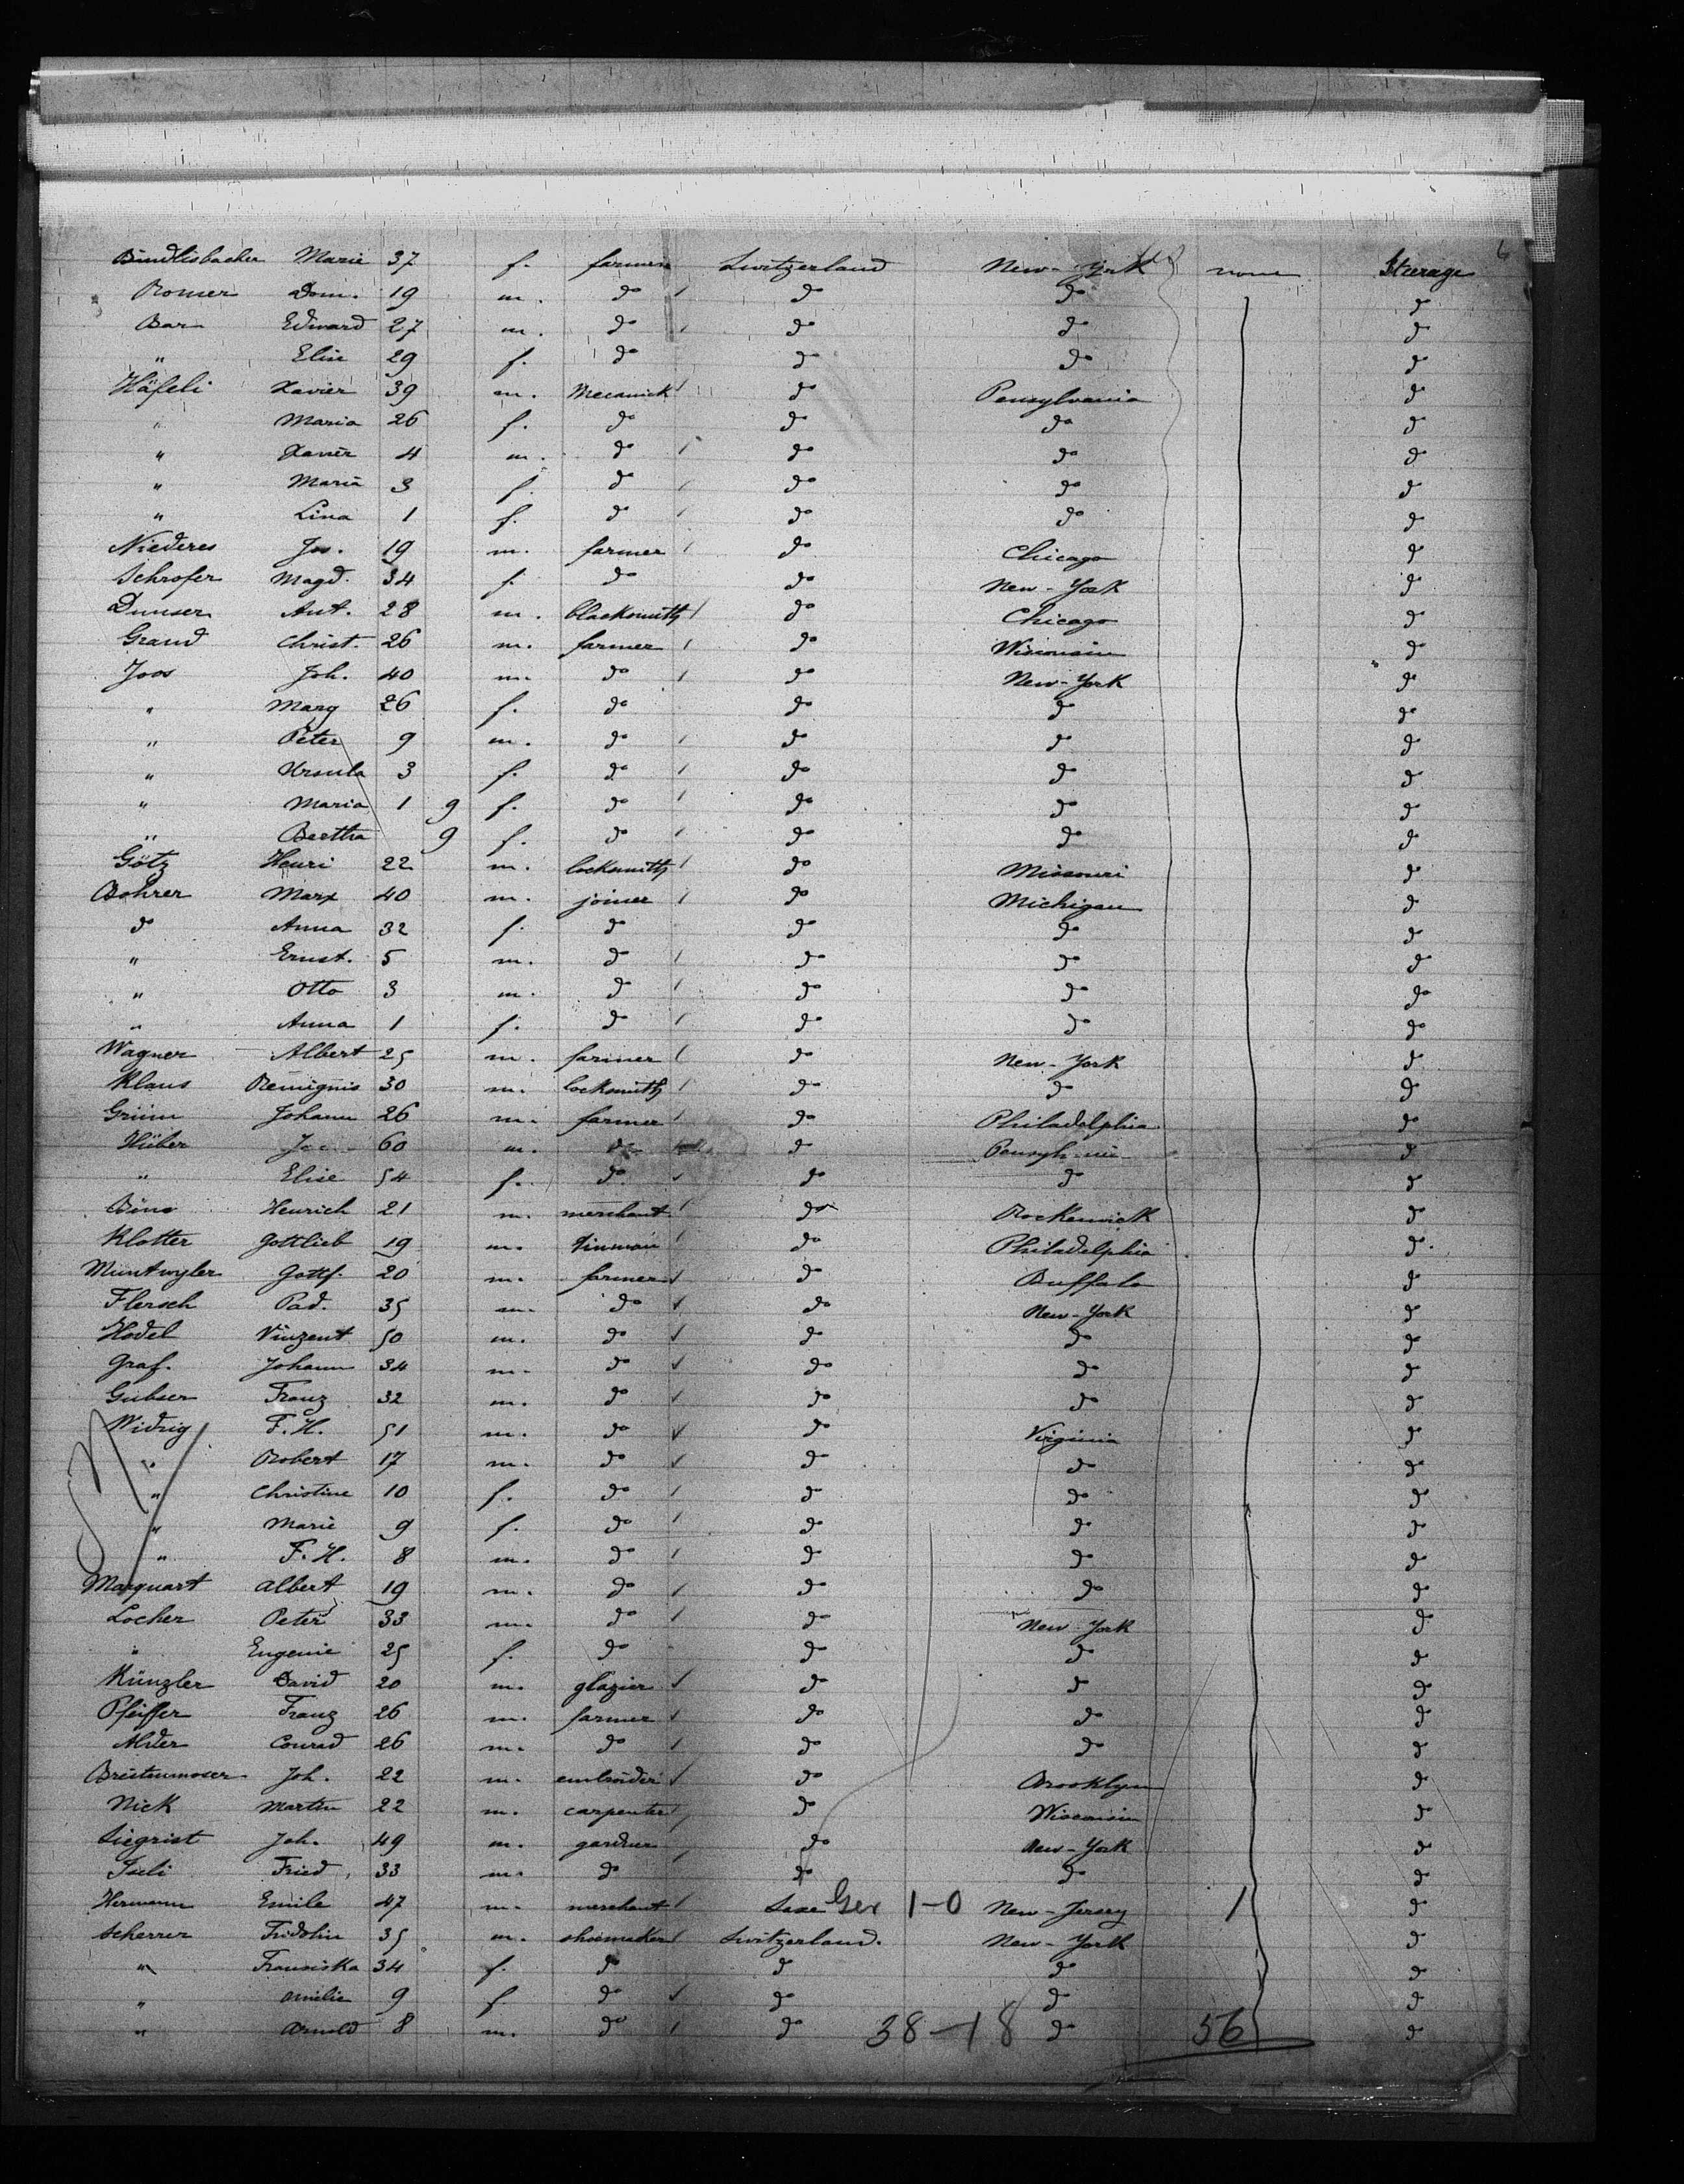 6
Bindlisbacher Marie 37 f. farmers Switzerland New-York none Steerage
Romer Dom. 19 m. do do do do
Bar Edward 27 m. do do do do
" Elise 29 f. do do do do
Häfeli Xavier 39 m. Mecanick do Pensylvania do
" Maria 26 f. do do do do
" Xavier 4 m. do do do do
" Maria 3 f. do do do do
" Lina 1 f. do do do do
Niederes Jos. 19 m. farmer do Chicago do
Schrofer Magd. 34 f. do do New-York do
Dunser Ant. 28 m. blacksmith do Chicago do
Grand Christ. 26 m. farmer do Wisconsin do
Joos Joh. 40 m. do do New-York do
" Marg 26 f. do do do do
" Peter 9 m. do do do do
" Ursula 3 f. do do do do
" Maria 1 9 f. do do do do
" Bertha 9 f. do do do do
Götz Henri 22 m. locksmith do Missouri do
Bohrer Marx 40 m. joiner do Michigan do
do Anna 32 f. do do do do
" Ernst. 5 m. do do do do
" Otto 3 m. do do do do
" Anna 1 f. do do do do
Wagner Albert 25 m. farmer do New-York do
Klaus Remignis 30 m. locksmith do do do
Grüm Johann 26 m. farmer do Philadelphia do
Hüber 60 m. do do do
" Elise 54 f. do do do do
Bino Heurich 21 m. merchant do Rockenwick do
Klotter Gottlieb 19 m. tinman do Philadelphia do
Muntwyler Gottf. 20 m. farmer do Buffalo do
Flersch Pad. 35 m. do do New-York do
Hodel Vinzent 50 m. do do do do
Graf. Johann 34 m. do do do do
Gubser Franz 32 m. do do do do
Widrig F. H. 51 m. do do Virginia do
" Robert 17 m. do do do do
" Christine 10 f. do do do do
" Marie 9 f. do do do do
" F. H. 8 m. do do do do
Marquart Albert 19 m. do do do do
Locher Peter 33 m. do do New York do
" Eugenie 25 f. do do do do
Künzler David 20 m. glazier do do do
Pfeiffer Franz 26 m. farmer do do do
Alder Conrad 26 m. do do do do
Breitenmoser Joh. 22 m. embroider do Brooklyn do
Nick Martin 22 m. carpenter do Wisconsin do
Siegrist Joh. 49 m. gardner do New-York do
Iseli Fried 33 m. do do do do
Hermann Emile 47 m. merchant Saxe Ger 1-0 New-Jersey 1 do
Scherrer Fridolin 35 m. shoemaker Switzerland. New-York do
" Fransiska 34 f. do do do do
" Amilie 9 f. do do do do
" Arnold 8 m. do do 38-18 do 56 do